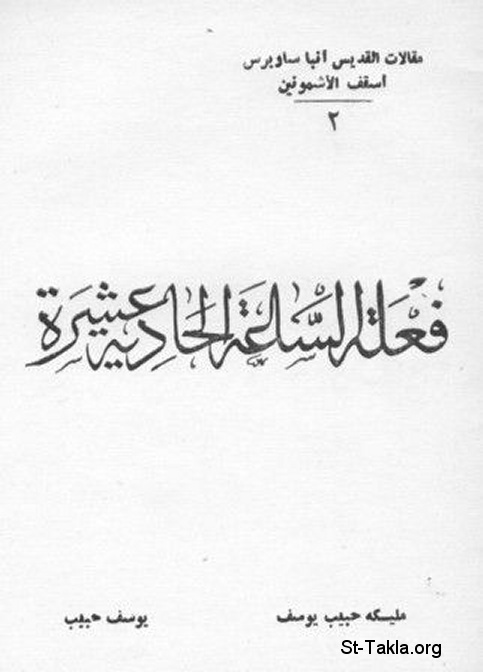 مقالات القديس أنبا ساويرس
أسقف الأشمونين
٢
فَعَلة السَّاعَة الحَادِيه عَشِيرَة
مليكه حبيب يوسف
يوسف حبيب
St-Takla.org